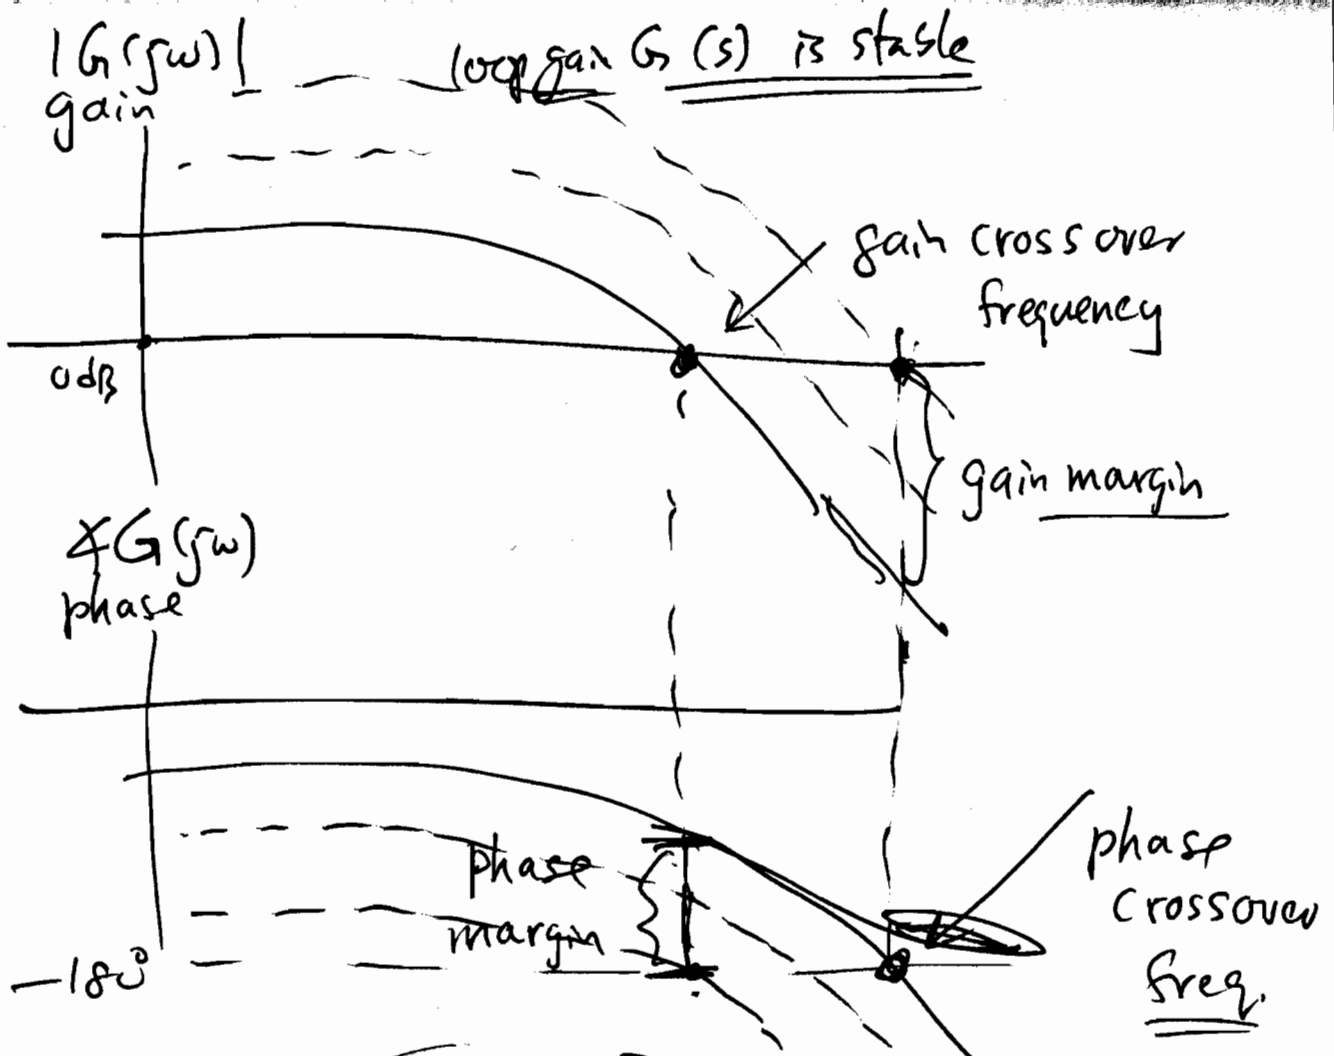 |G(jω)|
gain
loop gain G(s) is stable
gain crossover
frequency
0dB
gain margin
∡G(jω)
phase
phase
margin
phase
crossover
freq.
-180°